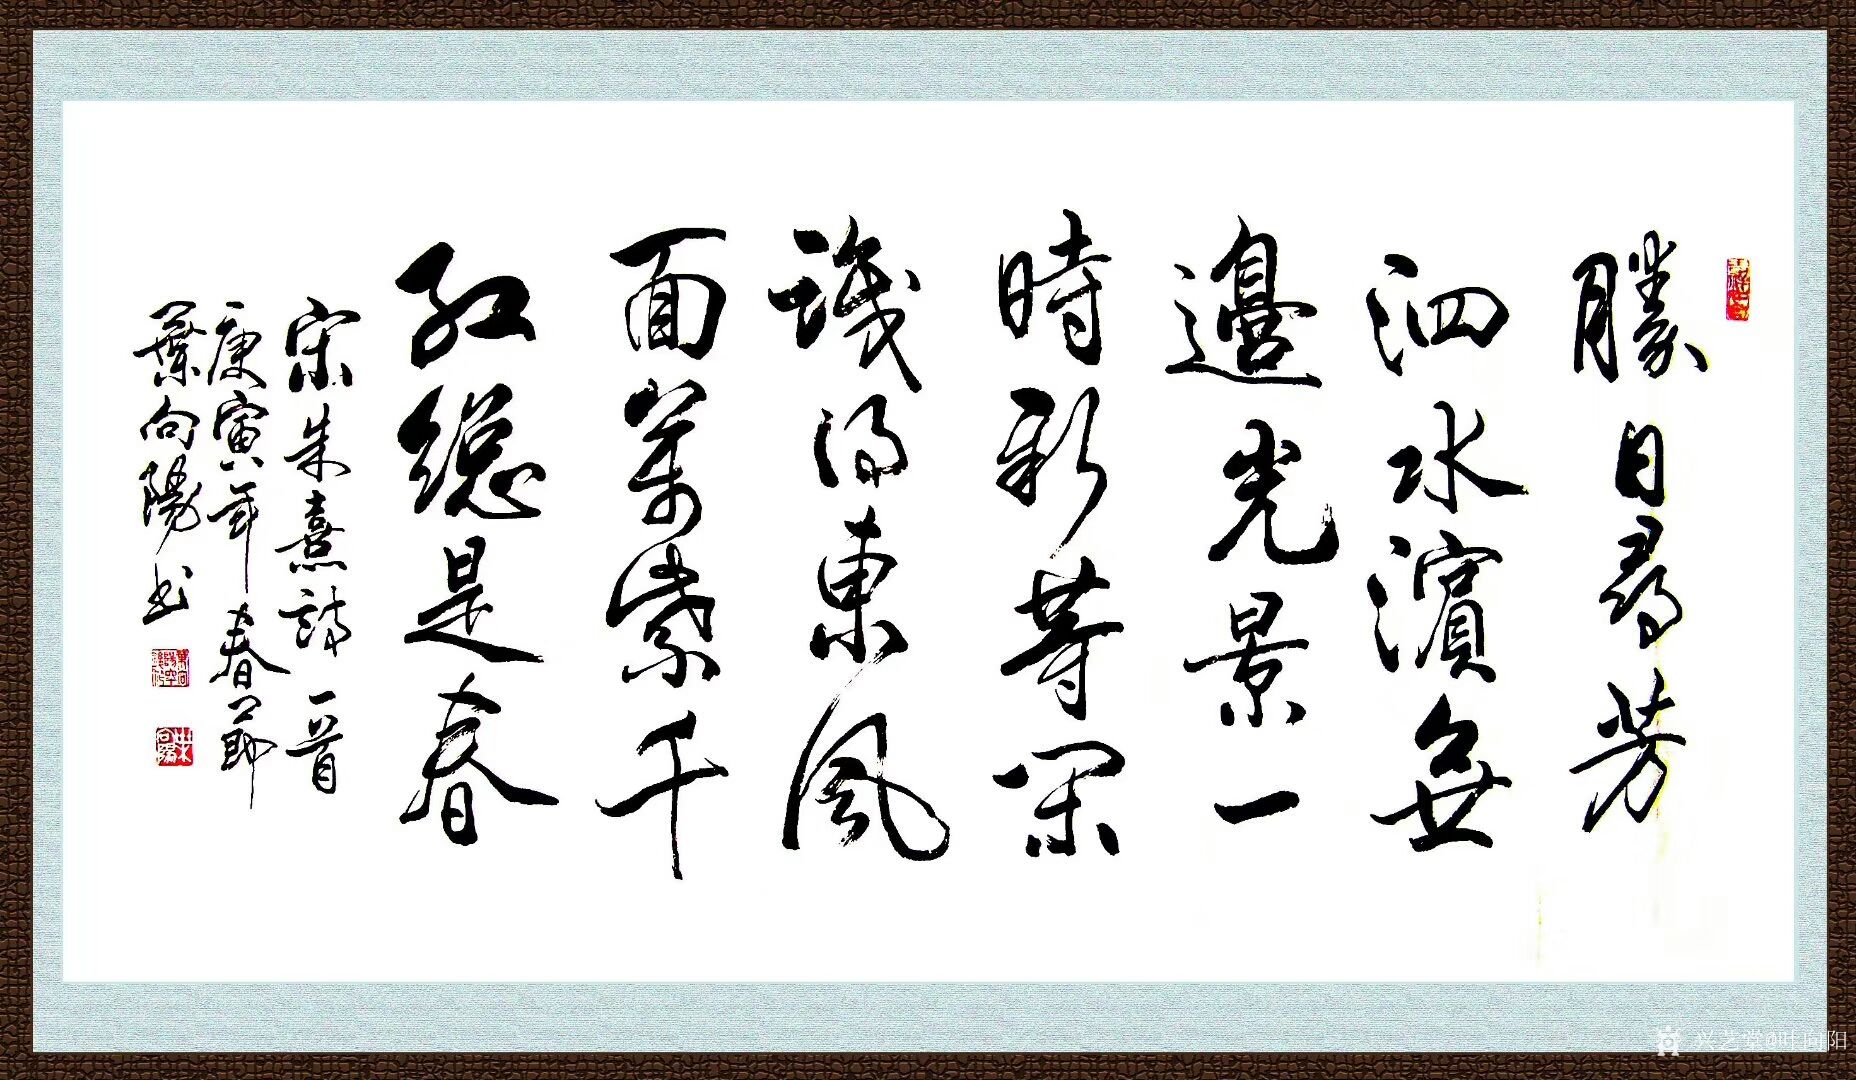 勝日尋芳
泗水濱無
邊光景一
時新等閑
識得東風
面萬紫千
紅總是春
宋朱熹詩一首
庚寅年春節
葉向陽书
兴艺堂@叶向阳